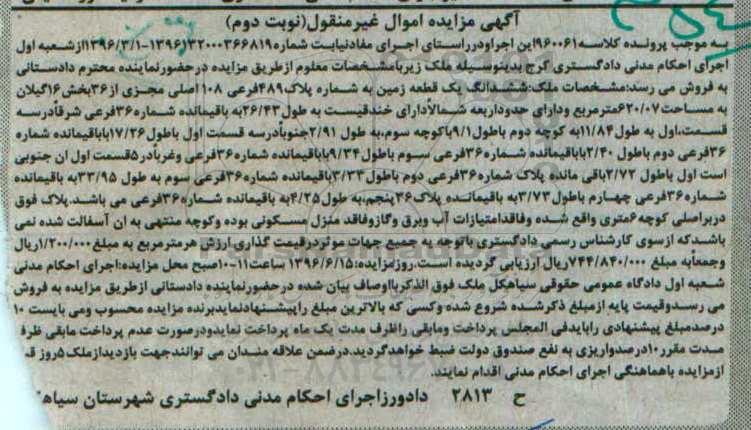 آگهی مزایده اموال غیرمنقول(نوبت دوم)
به موجب پرونده کلاسه۹۶۰۰۶۱این اجراودرراستای اجرای مفادنیابت شماره۱۳۹۶۰۱۳۲۰۰۰۳۶۶۸۱۹-۱۳۹۶/۳/۱ازشعبه اول
اجرای احکام مدنی دادگستری کرج بدینوسیله ملک زیربامشخصات معلوم ازطریق مزایده درحضورنماینده محترم دادستانی
به فروش می رسد:مشخصات ملک:ششدانگ یک قطعه زمین به شماره پلاک۴۸۹فرعی ۱۰۸ اصلی مجزی از۳۶بخش۱۶گیلان
به مساحت۶۲۰/۰۷مترمربع ودارای حدوداربعه شمالاًدارای خندقیست به طول۲۶/۴۳به باقیمانده شماره۳۶فرعی شرقاًدرسه
قسمت،اول به طول۱۱/۸۴به کوچه دوم باطول۹/۱باکوچه سوم،به طول ۲/۹۱جنوباًدرسه قسمت اول باطول۱۷/۲۶باباقیمانده شماره
۳۶فرعی دوم باطول ۲/۴۰باباقیمانده شماره۳۶فرعی سوم باطول ۹/۳۴باباقیمانده شماره۳۶فرعی وغرباًدر۵قسمت اول ان جنوبی
است اول باطول ۲/۷۲باقی مانده پلاک شماره۳۶فرعی دوم باطول۳/۳۳باباقیمانده شماره۳۶فرعی سوم به طول ۳۳/۹۵به باقیمانده
شماره۳۶فرعی چهارم باطول۳/۷۳به باقیمانده پلاک۳۶پنجم،به طول ۴/۲۵به باقیمانده شماره۳۶فرعی می باشد.پلاک فوق
دربراصلی کوچه۶متری واقع شده وفاقدامتیازات آب وبرق وگازوفاقد منزل مسکونی بوده وکوچه منتهی به ان آسفالت شده نمی
باشدکه ازسوی کارشناس رسمی دادگستری باتوجه به جمیع جهات موثردرقیمت گذاری ارزش هرمترمربع به مبلغ۱/۲۰۰/۰۰۰ریال
وجمعاًبه مبلغ ۷۴۴/۸۴۰/۰۰۰ریال ارزیابی گردیده است.روزمزایده:۱۳۹۶/۶/۱۵ ساعت۱۱-۱۰صبح محل مزایده:اجرای احکام مدنی
شعبه اول دادگاه عمومی حقوقی سیاهکل ملک فوق الذکربااوصاف بیان شده درحضورنماینده دادستانی ازطریق مزایده به فروش
می رسدوقیمت پایه ازمبلغ ذکرشده شروع شده وکسی که بالاترین مبلغ راپیشنهادنمایدبرنده مزایده محسوب ومی بایست ۱۰
درصدمبلغ پیشنهادی رابایدفی المجلس پرداخت ومابقی راظرف مدت یک ماه پرداخت نمایدودرصورت عدم پرداخت مابقی ظرف
مدت مقرر۱۰درصدواریزی به نفع صندوق دولت ضبط خواهدگردید.درضمن علاقه مندان می توانندجهت بازدیدازملک۵روز
ازمزایده باهماهنگی اجرای احکام مدنی اقدام نمایند.
ح ۲۸۱۳ دادورزاجرای احکام مدنی دادگستری شهرستان